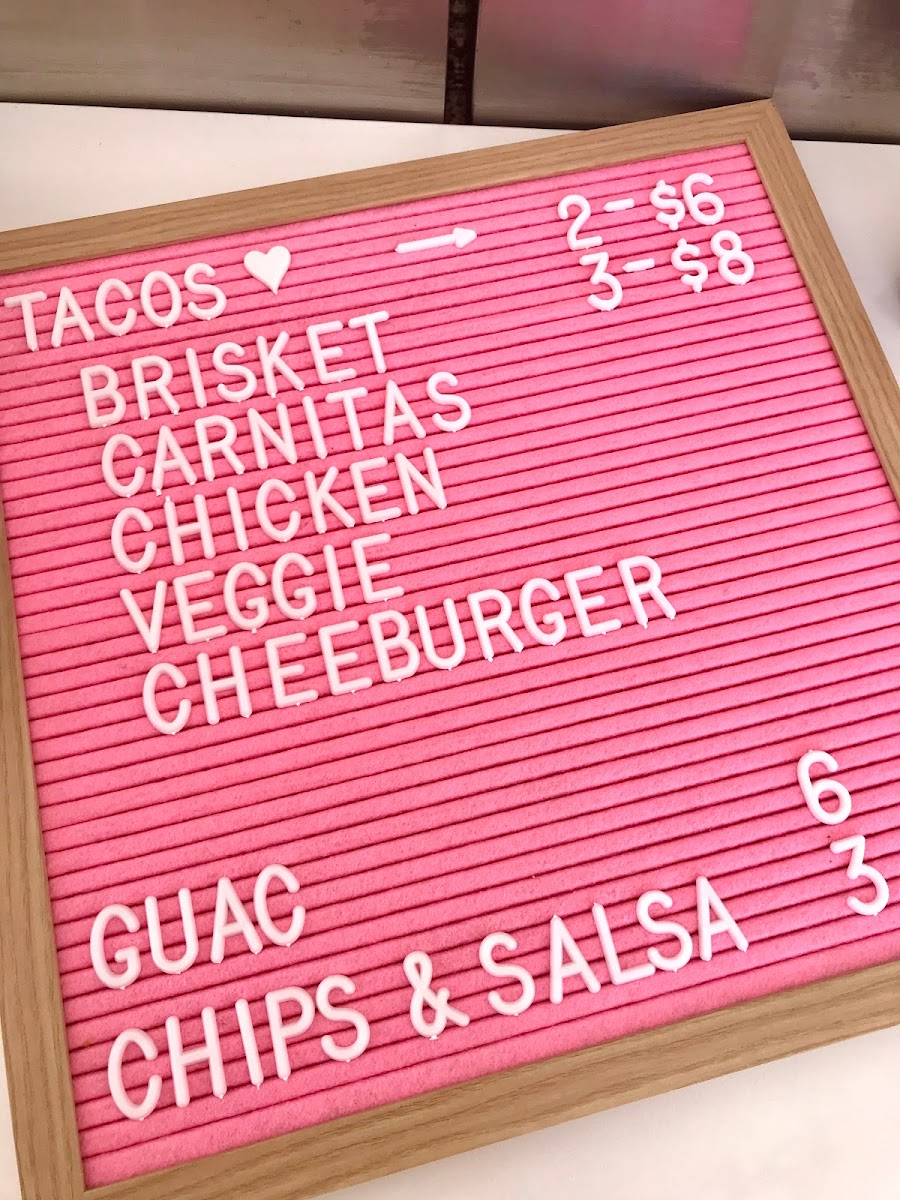 TACOS ♥ → 2-$6
3-$8
BRISKET
CARNITAS
CHICKEN
VEGGIE
CHEEBURGER
GUAC 6
CHIPS & SALSA 3